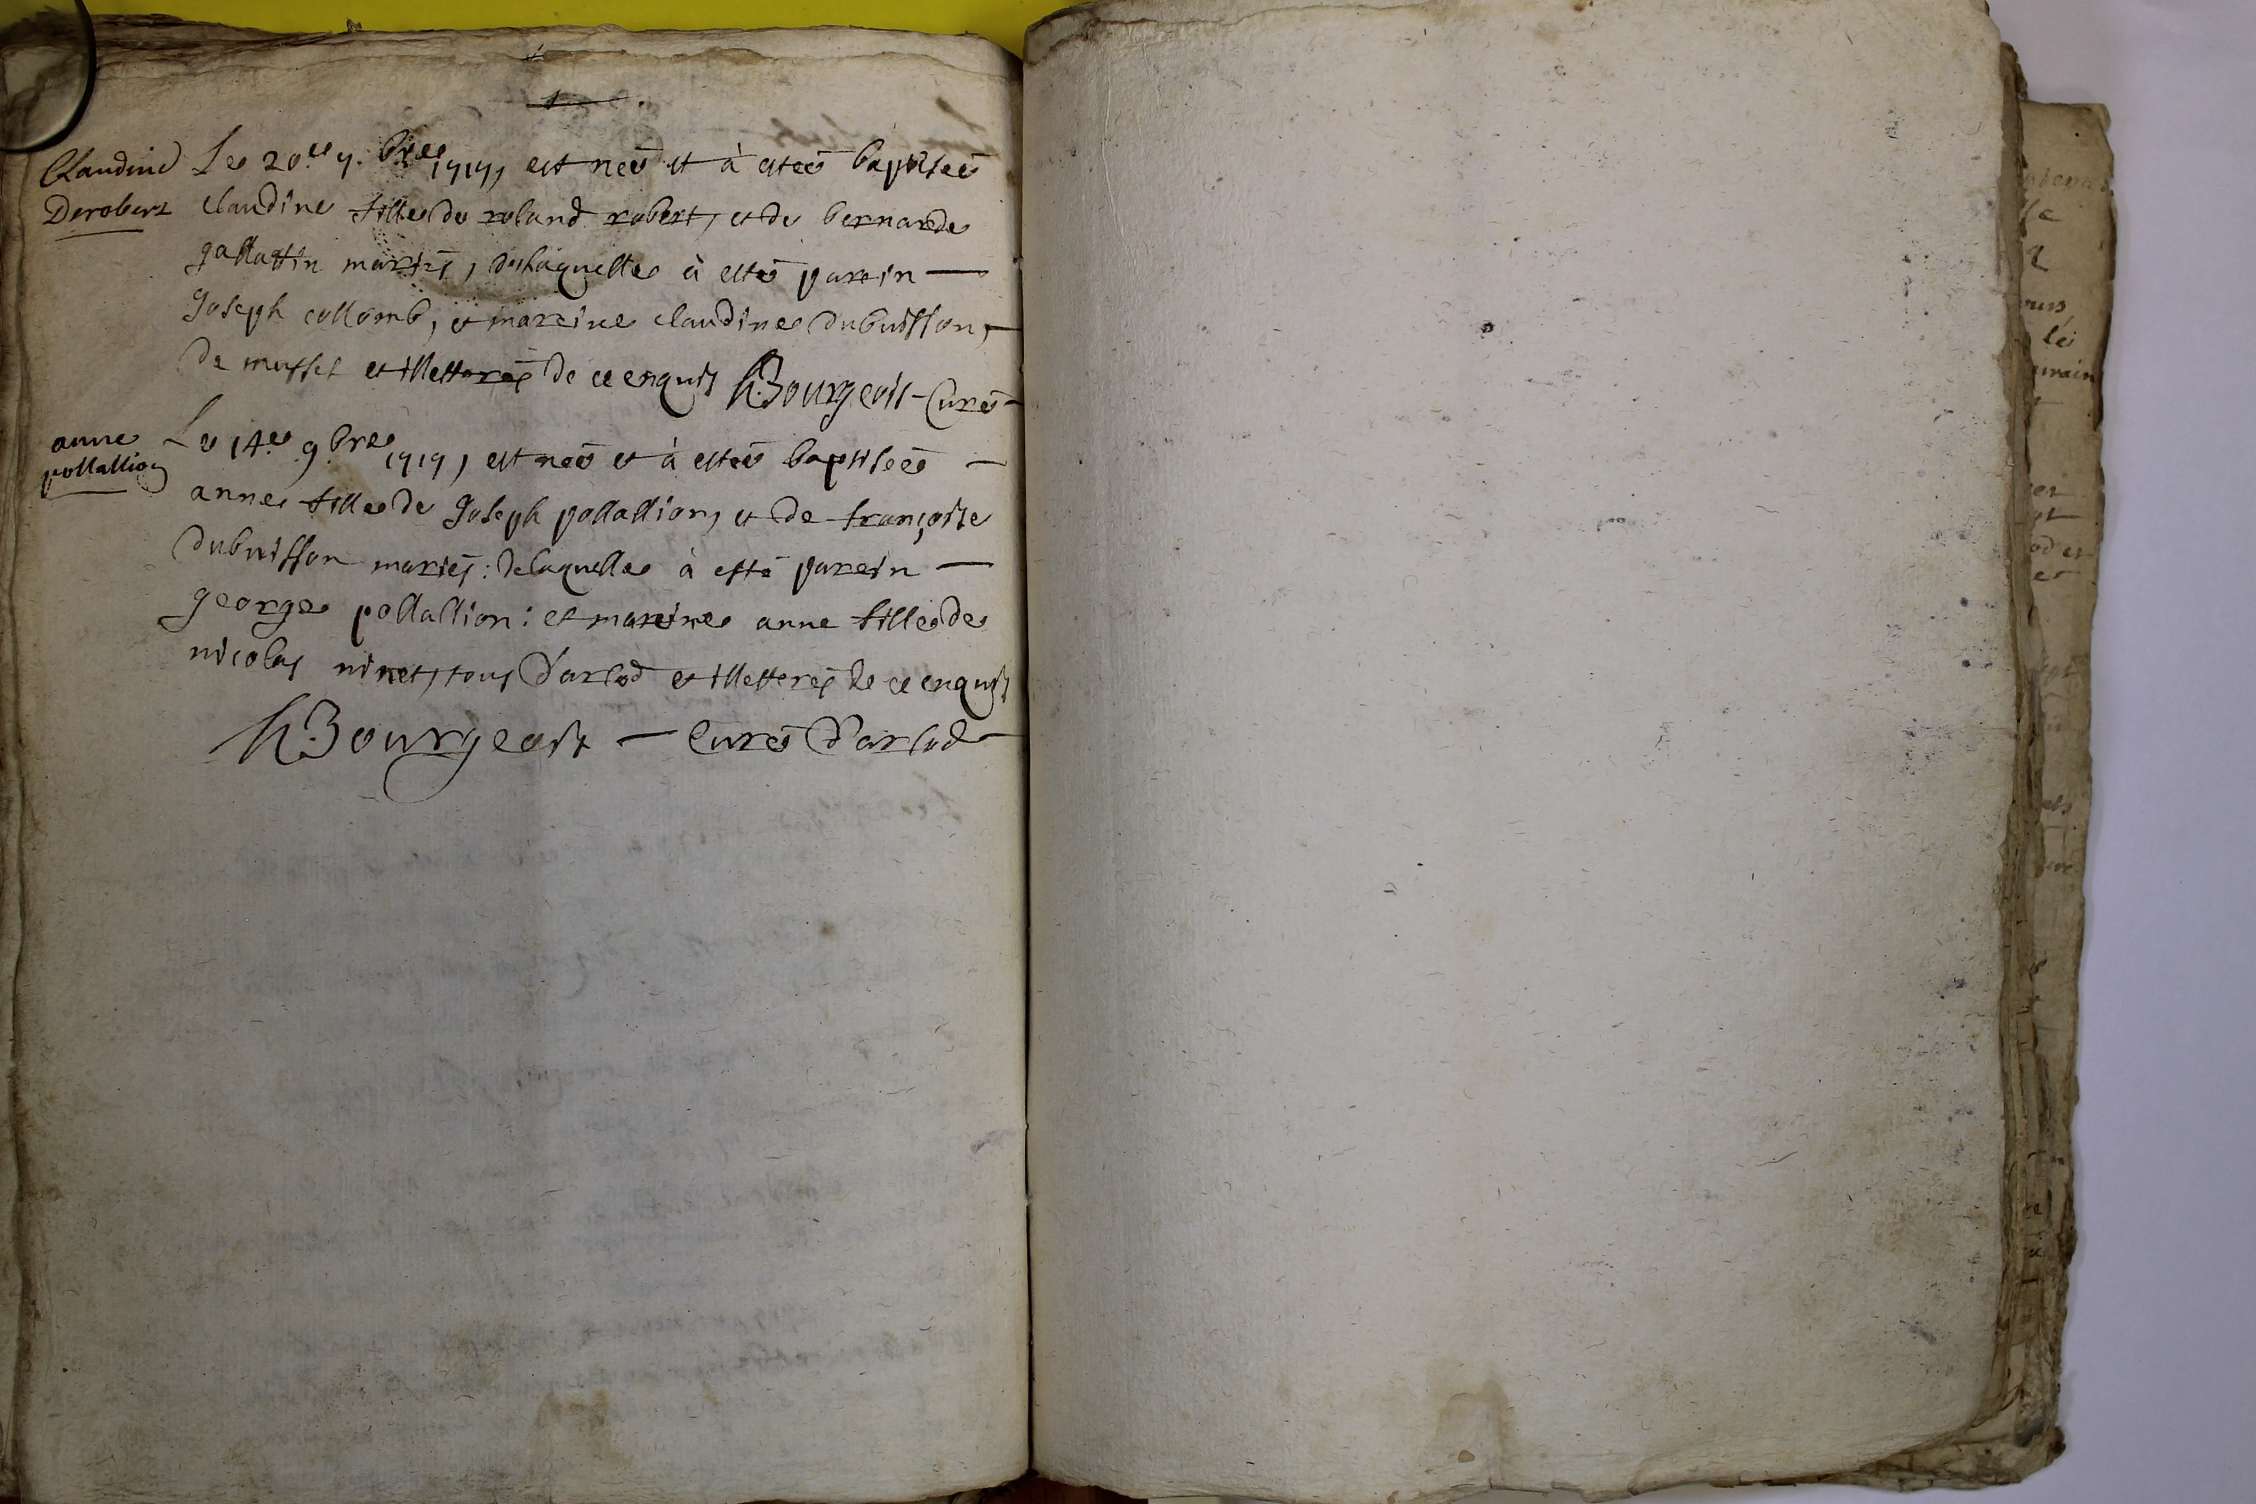 Claudine
Derobert
Le 20.e 7.bre 1717, est neé et à esteé baptiseé
claudine fille de roland robert, et de bernarde
gallattin mariés, de laquelle à esté parein —
Joseph collomb, et mareine claudine dubuisson, —
de mussel et illetterés de ce enquis h.Bourgeois - Curé
anne
pollallion
Le 14.e 9.bre 1717, est neé et à esteé baptiseé —
anne fille de Joseph pollallion, et de françoise
dubuisson mariés: de laquelle à esté parein —
george pollallion: et mareine anne fille de
nicolas ninet, tous d'arlod et illetterés de ce enquis
h.Bourgeois — Curé d'arlod